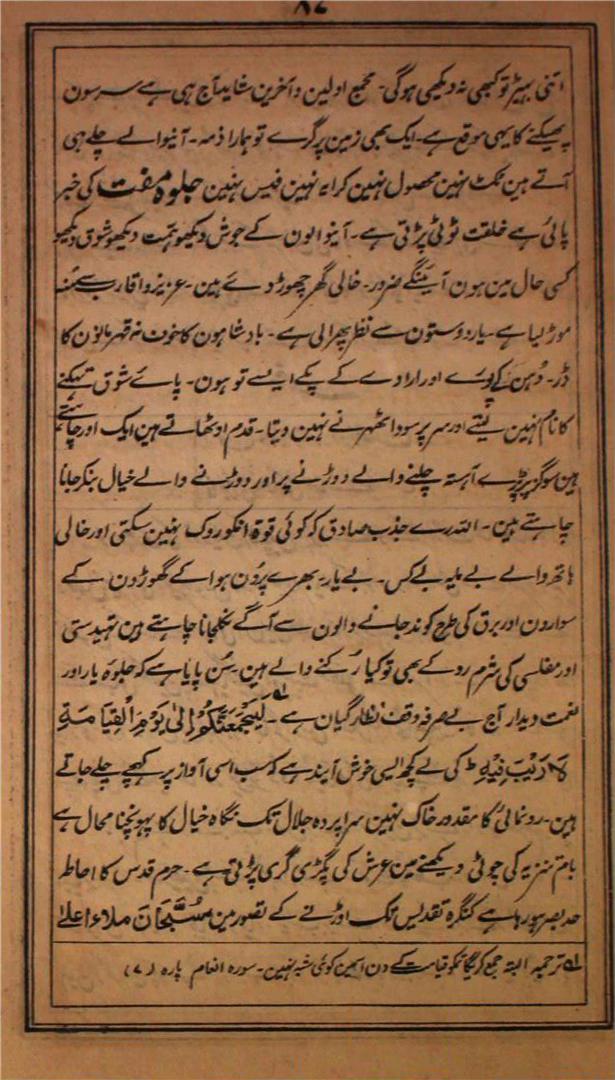 ۸۷
اتنی بھیڑ تو کبھی نہ دیکھی ہوگی۔ مجمع اولین و آخرین شاید آج ہی ہے سرسون
پھیکنے کا یہی موقع ہے۔ ایک بھی زمین پر گرے تو ہمارا ذمہ۔ آنیوالے چلے ہی
آتے ہین ٹکٹ نہین محصول نہین کرایہ نہین فیس نہین جلوہ مفت کی خبر
پائی ہے خلقت ٹوٹی پڑتی ہے۔ آنیوالون کے جوش دیکھو ہمت دیکھو شوق دیکھو
کسی حال مین ہون آئینگے ضرور۔ خالی گھر چھوڑ دے ہین۔ عزیز و اقارب سے منہ
موڑ لیا ہے۔ یار دوستون سے نظر پھرالی ہے۔ بادشاہون کا خوف نہ قہرمانون کا
ڈر۔ دُہن کے پورے اور ارادے کے پکے ایسے تو ہون۔ پاے شوق تہکنے
کا نام نہین لیتے اور سر پر سودا ٹھہرنے نہین دیتا۔ قدم اوٹھاتے ہین ایک اور چاہتے
ہین سو گز پر پڑے آہستہ چلنے والے دوڑنے پر اور دوڑنے والے خیال بنکر جانا
چاہتے ہین۔ اللہ رے جذب صادق کہ کوئی قوۃ انکو روک نہین سکتی اور خالی
ہاتھ والے بے مایہ بے کس۔ بے یار۔ بھرے پرُون ہوا کے گھوڑون کے
سوارون اور برق کی طرح کوند جانے والون سے آگے نکلجانا چاہتے ہین تہیدستی
اور مفلسی کی شرم روکے بھی تو کیا رُکنے والے ہین۔ سُن پایا ہے کہ جلوہ یار اور
نعمت دیدار آج بے صرفہ وقف نظارگیان ہے۔ لَيَجْمَعَنَّكُمْ اِلٰی يَوْمِ الْقِيَامَةِ
لَا رَيْبَ فِيْهِ ط کی لے کچھ ایسی خوش آیند ہے کہ سب اسی آواز پر کھچے چلے جاتے
ہین۔ رونمائی کا مقدور خاک نہین سراپردہ جلال تک نگاہ خیال کا پہونچنا محال ہے
بام تنزیہ کی چوٹی دیکھنے مین عرش کی پگڑی گری پڑتی ہے۔ حرم قدس کا احاطہ
حد بصر ہو رہا ہے کنگرہ تقدیس تک اوڑنے کے تصور مین مسُبَّحَانَ ملاء اعلےٰ
لہ ترجمہ البتہ جمع کریگا تمکو قیامت کے دن اسمین کوئی شبہ نہین۔ سورہ انعام پارہ (۷)